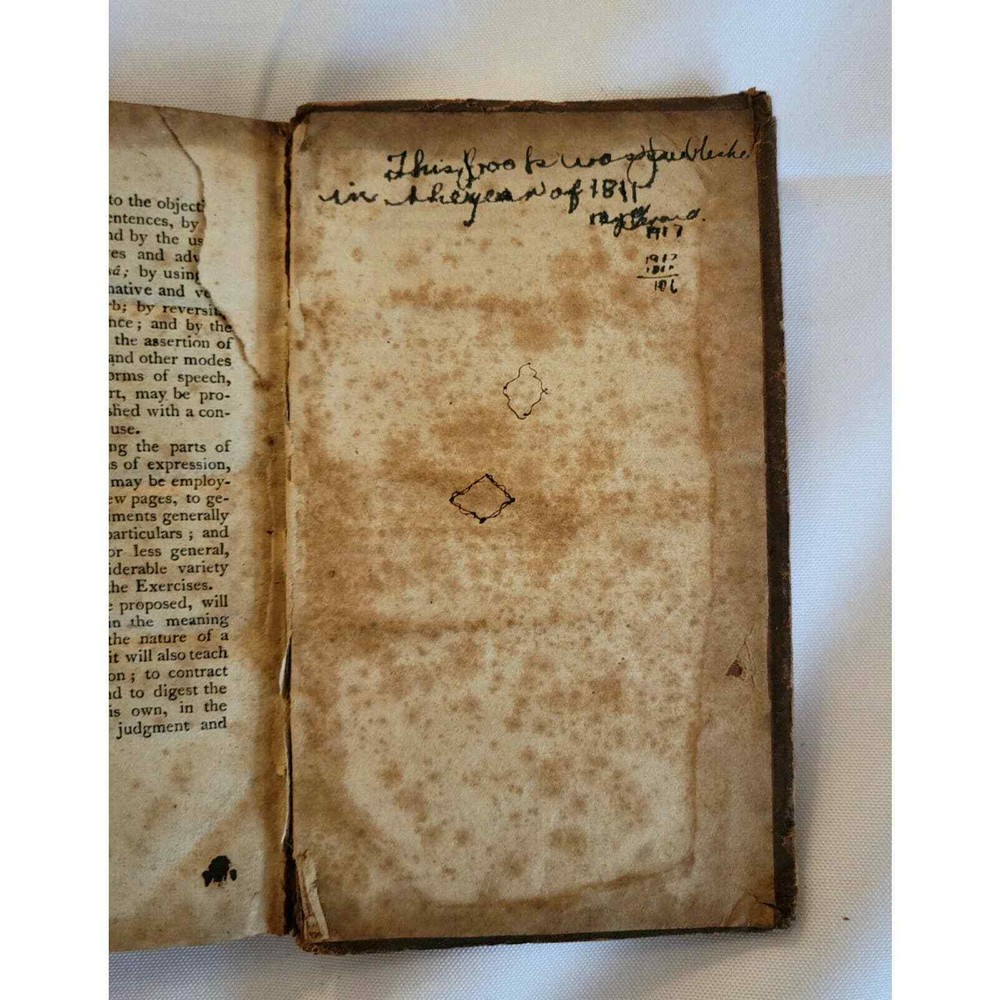 to the object
entences, by
nd by the us
es and adv
há; by using
native and ve
rb; by reversin
nce; and by the
the assertion of
and other modes
orms of speech,
rt, may be pro-
shed with a con-
use.
ng the parts of
s of expression,
may be employ-
ew pages, to ge-
uments generally
particulars; and
or less general,
siderable variety
the Exercises.
e proposed, will
in the meaning
the nature of a
it will also teach
on; to contract
nd to digest the
is own, in the
judgment and
This book was publishe
in the year of 1811
1917
1917
1811
106